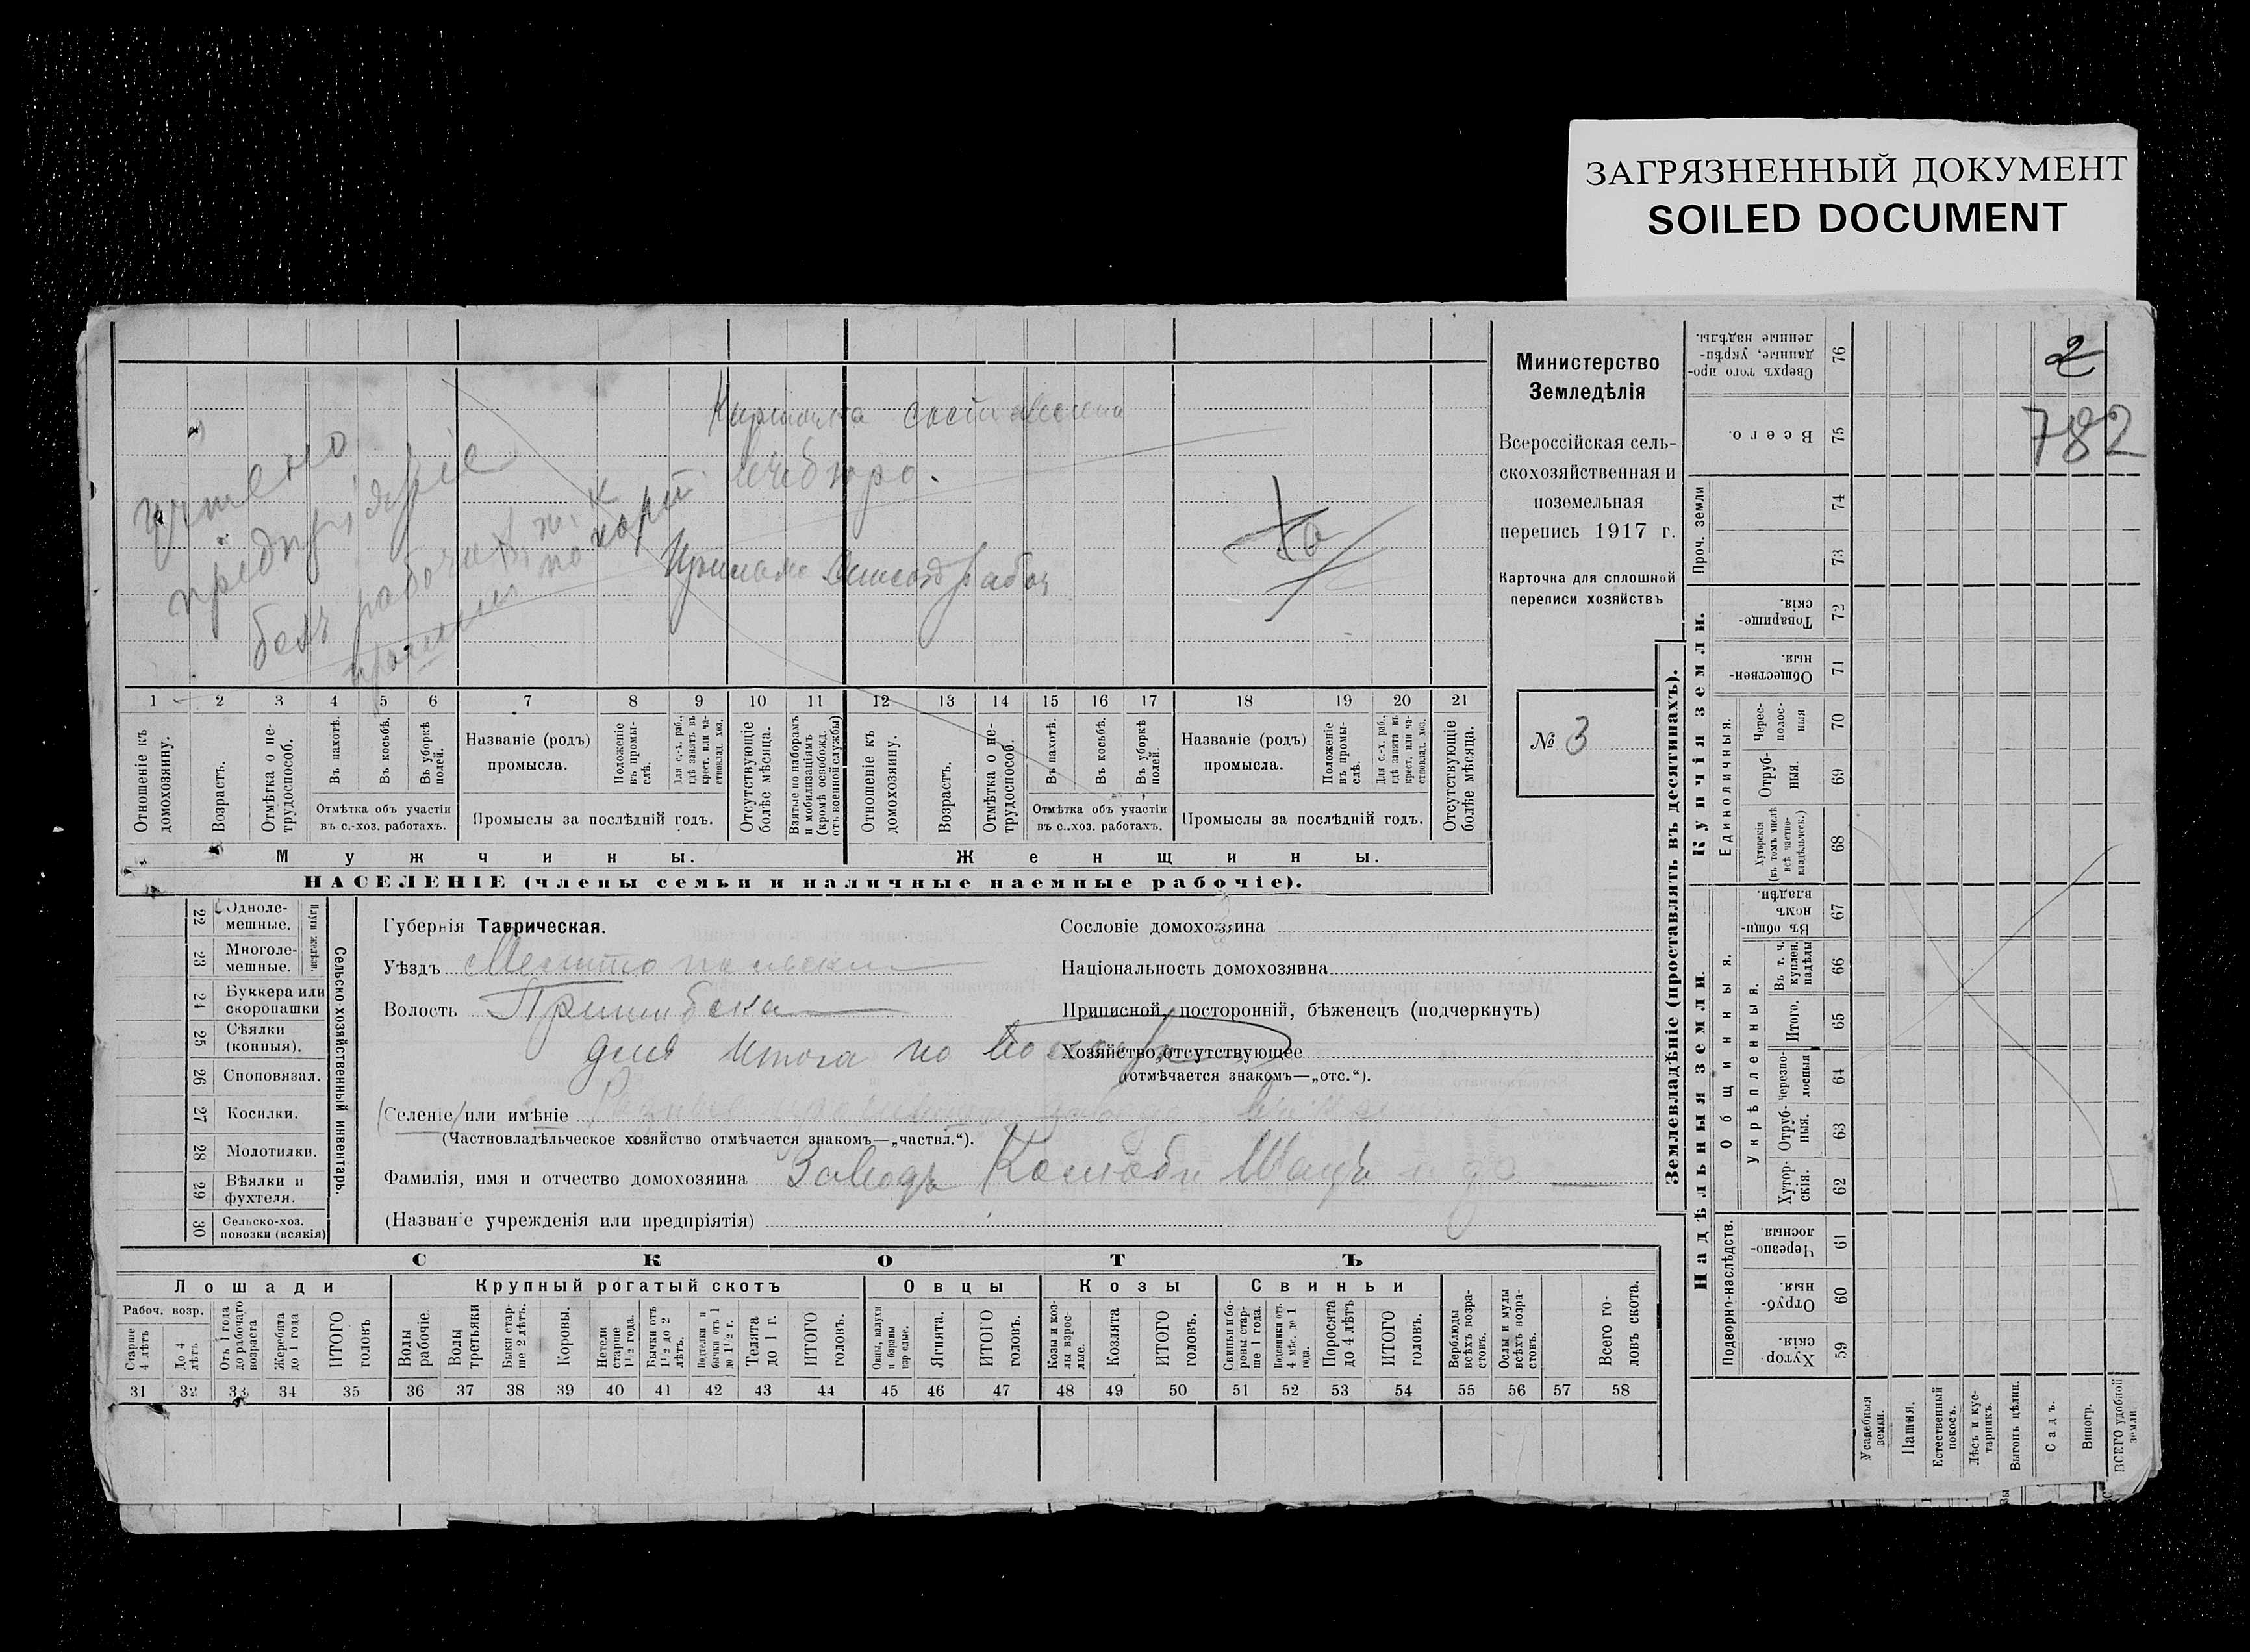 ЗАГРЯЗНЕННЫЙ ДОКУМЕНТ
SOILED DOCUMENT
2
782
учтено
предпріятіе
безъ рабочихъ
Министерство
Земледѣлія
Всероссійская сель-
скохозяйственная и
поземельная
перепись 1917 г.
Карточка для сплошной
переписи хозяйствъ
№ 3
1 2 3 4 5 6 7 8 9 10 11 12 13 14 15 16 17 18 19 20 21
Отношеніе къ домохозяину.
Возрастъ.
Отмѣтка о не-трудоспособ.
Въ пахотѣ.
Въ косьбѣ.
Въ уборкѣ полей.
Отмѣтка объ участіи въ с.-хоз. работахъ.
Названіе (родъ) промысла.
Положеніе въ промы-слѣ.
Для с.-х. раб., гдѣ занятъ въ крест. или ча-стновлад. хоз.
Промыслы за послѣдній годъ.
Отсутствующіе болѣе мѣсяца.
Взятые по наборамъ и мобилизаціямъ (кромѣ освобожд. отъ военной службы)
Отношеніе къ домохозяину.
Возрастъ.
Отмѣтка о не-трудоспособ.
Въ пахотѣ.
Въ косьбѣ.
Въ уборкѣ полей.
Отмѣтка объ участіи въ с.-хоз. работахъ.
Названіе (родъ) промысла.
Положеніе въ промы-слѣ.
Для с.-х. раб., гдѣ занята въ крест. или ча-стновлад. хоз.
Промыслы за послѣдній годъ.
Отсутствующіе болѣе мѣсяца.
Мужчины.
Женщины.
НАСЕЛЕНІЕ (члены семьи и наличные наемные рабочіе).
22 Одноле-мешные.
23 Многоле-мешные.
Плуги желѣзн.
24 Буккера или скоропашки
25 Сѣялки (конныя).
26 Сноповязал.
27 Косилки.
28 Молотилки.
29 Вѣялки и фухтеля.
30 Сельско-хоз. повозки (всякія)
Сельско-хозяйственный инвентарь.
Губернія Таврическая.
Уѣздъ Мелитопольскій
Волость Пришибская
для итога по
Селеніе или имѣніе
(Частновладѣльческое хозяйство отмѣчается знакомъ—„частвл.“).
Фамилія, имя и отчество домохозяина Заводъ
(Названіе учрежденія или предпріятія)
Сословіе домохозяина
Національность домохозяина
Приписной, посторонній, бѣженецъ (подчеркнуть)
Хозяйство, отсутствующее
(отмѣчается знакомъ—„отс.“).
СКОТЪ
Лошади
Крупный рогатый скотъ
Овцы
Козы
Свиньи
Рабоч. возр.
Старше 4 лѣтъ
До 4 лѣтъ
Отъ 1 года до рабочаго возраста
Жеребята до 1 года
ИТОГО головъ
Волы рабочіе.
Волы третьяки
Быки стар-ше 2 лѣтъ.
Коровы.
Нетели старше 1½ года.
Бычки отъ 1½ до 2 лѣтъ.
Подтелки и бычки отъ 1 до 1½ г.
Телята до 1 г.
ИТОГО головъ.
Овцы, валухи и бараны взрослые.
Ягнята.
ИТОГО головъ.
Козы и коз-лы взрос-лые.
Козлята
ИТОГО головъ.
Свиньи и бо-ровы стар-ше 1 года.
Подсвинки отъ 4 мѣс. до 1 года.
Поросята до 4 лѣтъ
ИТОГО головъ.
Верблюды всѣхъ возра-стовъ.
Ослы и мулы всѣхъ возра-стовъ.
Всего го-ловъ скота.
31 32 33 34 35 36 37 38 39 40 41 42 43 44 45 46 47 48 49 50 51 52 53 54 55 56 57 58
Землевладѣніе (проставлять въ десятинахъ).
Купчія земли.
Надѣльныя земли.
Сверхъ того про-данные, укрѣп-ленные надѣлы. 76
Всего. 75
Проч. земли 74 73
Товарище-скія. 72
Обществен-ныя. 71
Единоличныя.
Черес-полос-ныя 70
Отруб-ныя. 69
Хуторскія (въ томъ числѣ всѣ частно-владѣльческ.) 68
Общинныя.
Въ общи-номъ владѣн. 67
Укрѣпленныя.
Въ т. ч. куплен. надѣлы 66
Итого. 65
Черезпо-лосныя 64
Отруб-ныя. 63
Хутор-скія. 62
Подворно-наслѣдств.
Черезпо-лосныя 61
Отруб-ныя. 60
Хутор-скія. 59
Усадебныя земли.
Пашня.
Естественный покосъ.
Лѣсъ и кус-тарникъ.
Выгонъ цѣлин.
Садъ.
Виногр.
ВСЕГО удобной земли.